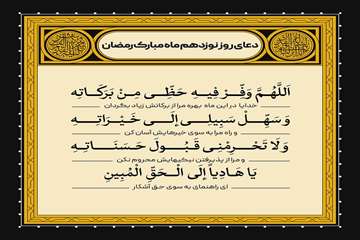 دعای روز نوزدهم ماه مبارک رمضان
اَللّهُمَّ وَفِّرْ فیهِ حَظّی مِنْ بَرَکاتِهِ
خدایا در این ماه بهره مرا از برکاتش زیاد بگردان
وَسَهِّلْ سَبیلی إِلَی خَیْراتِهِ
و راه مرا به سوی خیرهایش آسان کن
وَلَا تَحْرِمْنِی قَبُولَ حَسَنَاتِهِ
و مرا از پذیرفتن نیکیهایش محروم نکن
یَا هَادِیاً إِلَی الْحَقِّ الْمُبِینِ
ای راهنمای به سوی حق آشکار